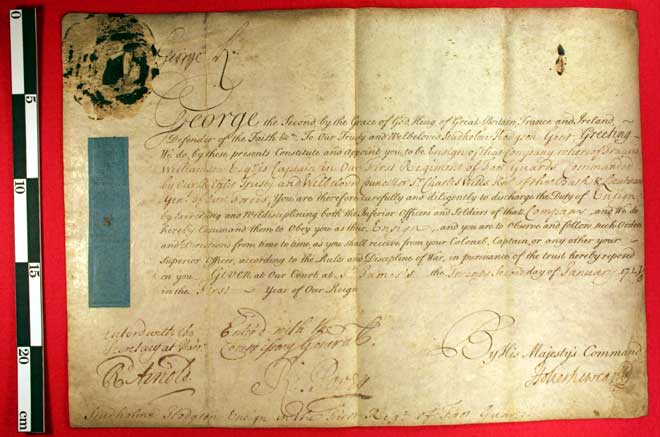 George R.
George the Second by the Grace of God, King of Great Britain, France and Ireland
Defender of the Faith &c. To Our Trusty and Welbeloved Studholm Hodgson Gent. Greeting
We do by these presents Constitute and Appoint you to be Ensign of that Company whereof Francis
Williamson Esq. is Captain in Our First Regiment of Foot Guards Commanded
by Our Right Trusty and Welbeloved Councellor Sr. Charles Wills Knt. of the Bath & Lieutenant
Genl. of Our Forces, You are therefore carefully and diligently to discharge the Duty of Ensign
by Exercising and Welldisciplining both the Inferior Officers and Soldiers of that Company, and We do
hereby Command them to Obey you as their Ensign, and you are to Observe and follow such Orders
and Directions from time to time as you shall receive from your Colonel, Captain, or any other your
Superior Officer, according to the Rules and Discipline of War, in pursuance of the trust hereby reposed
in you. Given at Our Court at St. James's the Twenty Second day of January 172
in the First Year of Our Reign
By His Majesty's Command
Enterd with the
Secretary at Warr
Enter'd with the
Comissary General
R. Arnold.
Studholm Hodgson Ensign in the First Regt. of Foot Guards
0
5
10
15
20
cm